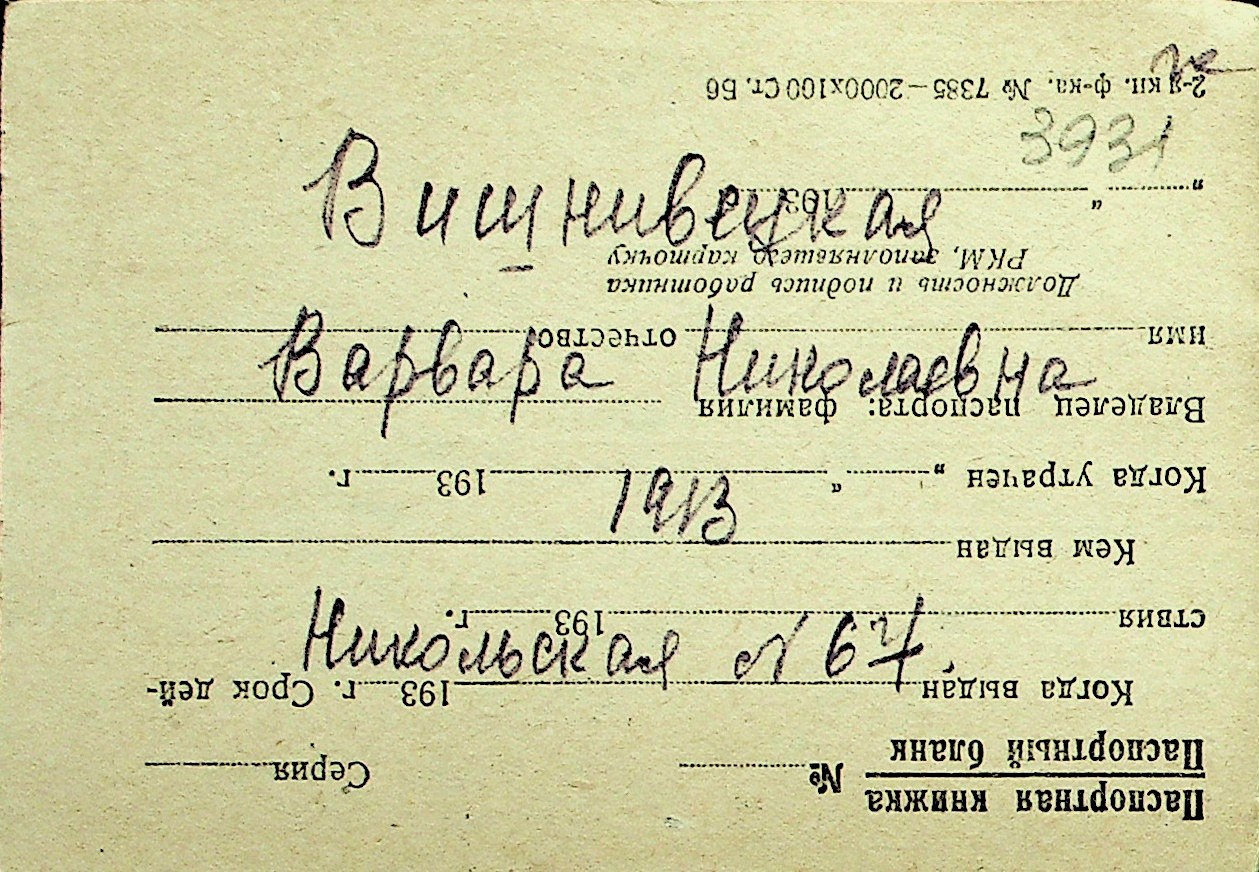 3931
Вишнивецкая
Варвара Николаевна
1913
Никольская № 67.
Паспортная книжка
Паспортный бланк
№ Серия
Когда выдан 193 г. Срок дей-
ствия 193 г.
Кем выдан
Когда утрачен „ “ 193 г.
Владелец паспорта: фамилия
имя отчество
Должность и подпись работника
РКМ, заполнявшего карточку
„ “ 193
2-я кн. ф-ка. № 7385—2000х100 Ст.